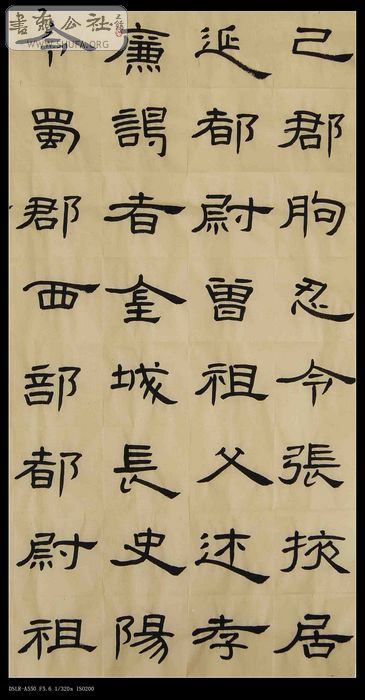 己郡朐忍令張掖居
延都尉曾祖父述孝
廉謁者金城長史陽
令蜀郡西部都尉祖
書藝公社
WWW.SHUFA.ORG
DSLR-A550 F5.6 1/320s ISO200